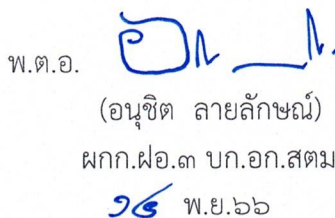 พ.ต.อ.
(อนุชิต ลายลักษณ์)
ผกก.ฝอ.๓ บก.อก.สตม
พ.ย.๖๖